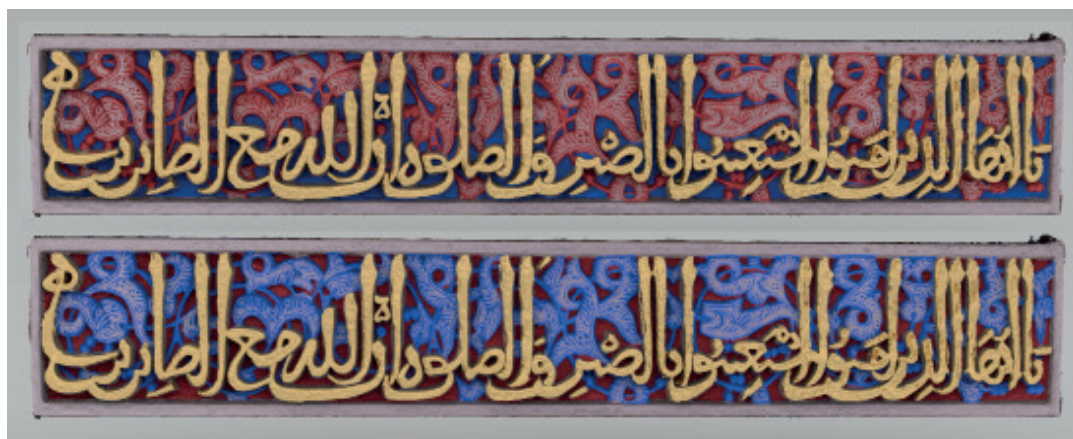 يا ايها الذين امنوا استعينوا بالصبر والصلوة ان الله مع الصابرين
يا ايها الذين امنوا استعينوا بالصبر والصلوة ان الله مع الصابرين